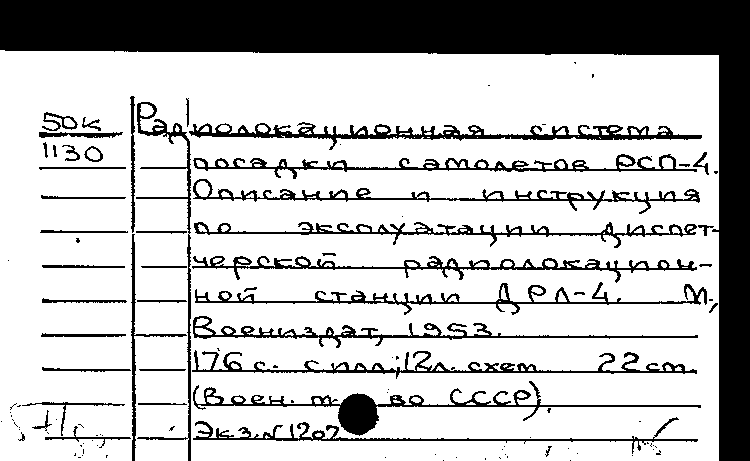 50к Радиолокационная система
1130 посадки самолетов РСП-4.
Описание и инструкция
по эксплуатации диспет-
черской радиолокацион-
ной станции ДРЛ-4. М.,
Воениздат, 1953.
176 с. с илл.; 12л. схем 22 см.
(Воен. м-во СССР).
Экз. № 1207